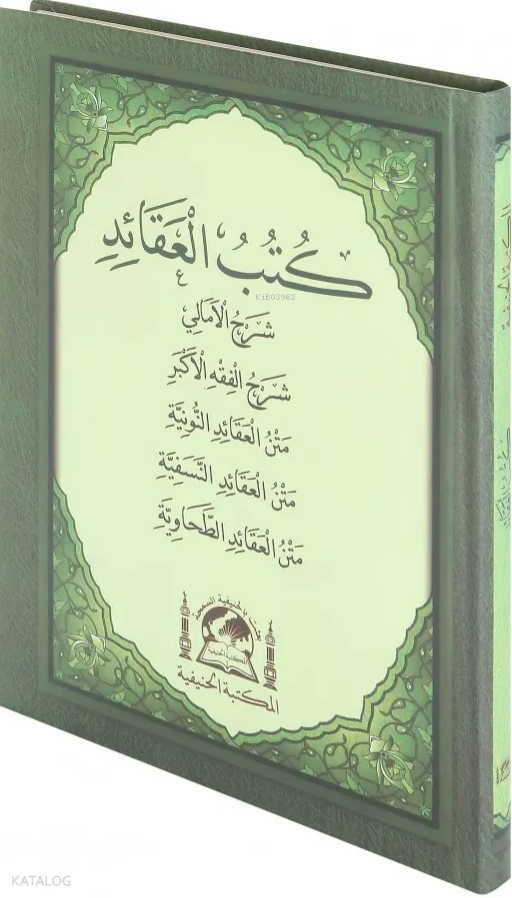 كُتُبُ الْعَقَائِدِ
KiB03962
شَرْحُ الْاَمَالِي
شَرْحُ الْفِقْهِ الْاَكْبَرِ
مَتْنُ الْعَقَائِدِ النُّونِيَّةِ
مَتْنُ الْعَقَائِدِ النَّسَفِيَّةِ
مَتْنُ الْعَقَائِدِ الطَّحَاوِيَّةِ
المكتبة الحنيفية
KATALOG